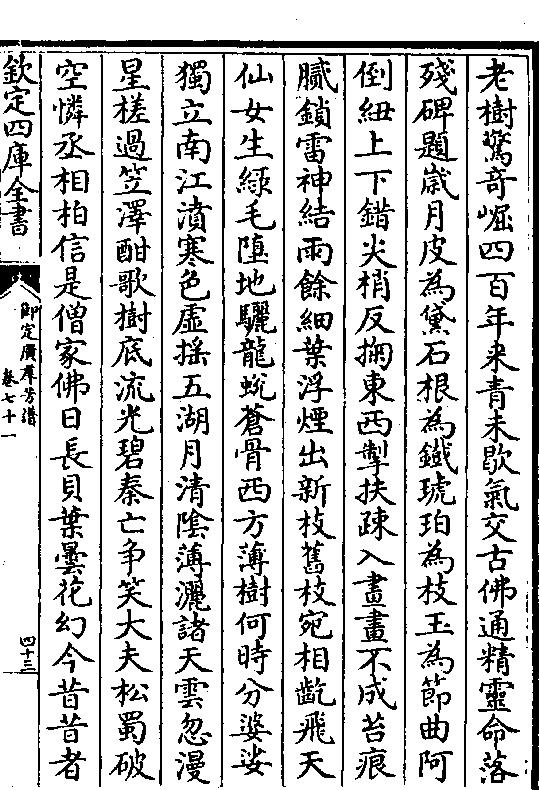 老樹驚奇崛四百年来青未歇氣交古佛通精靈命落
殘碑題歳月皮為黛石根為鐡琥珀為枝玉為節曲阿
倒紐上下錯尖梢反掬東西掣扶疎入畫畫不成苔痕
膩鎖雷神結雨餘細葉浮煙出新枝舊枝宛相齕飛天
仙女生綠毛墮地驪龍蛻蒼骨西方薄樹何時分婆娑
獨立南江濆寒色虛揺五湖月清陰薄灑諸天雲忽漫
星槎過笠澤酣歌樹底流光碧秦亡争笑大夫松蜀破
空憐丞相柏信是僧家佛日長貝葉曇花幻今昔昔者
欽定四庫全書
御定廣羣芳譜
卷七十一
四十三